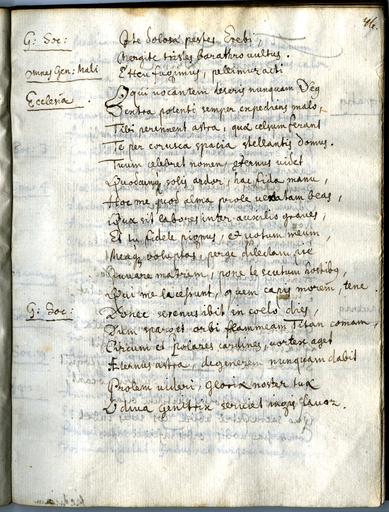 46.
G: Soc: Ite dolosæ pestes Erebi,
Mergite tristes barathro vultus.
omnes Gen: Mali Et heu fugimus, pellimur acti
Ecclesia. O qui vocantem deseris nunquam
Dextra potenti semper expediens malo,
Tibi serennent astra, quæ celsum ferant
Te per corusca spacia stellantis domus.
Tuum celebret nomen, æternus videt
Quodcunq solis ardor, hac fida manu,
Hoc me quod alma prole beas,
Dux sit labores inter auxilio graves,
Et tu fidele pignus, et votum meum,
Meaq voluptas, perge dilectam
Iuvare matrem, pone te scutum hostibq,
Qui me lacessunt, quem capis morem, tene.
G: Soc: Donec serenus ibit in coelo dies,
Dum sparget orbi flammeam Titan comam,
Circum et polares cardines, vortex aget
Æternus astra, degenerem nunquam dabit
Prolem videri, gloria noster tua
O diva Genitrix serviet iugis favor.